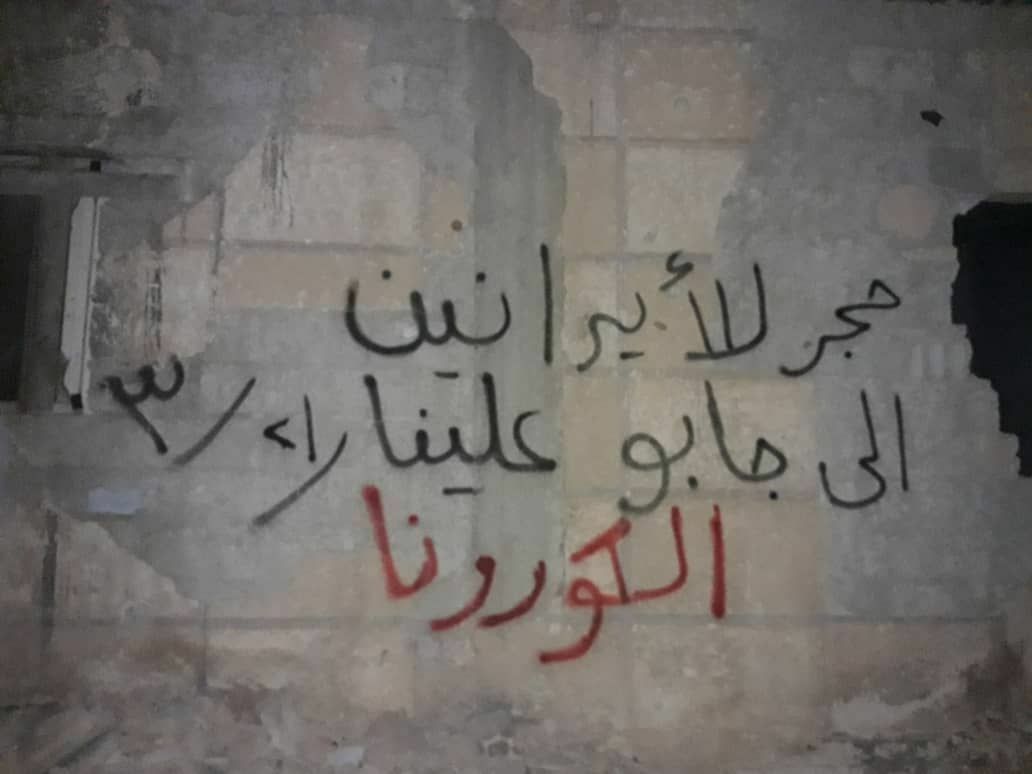 حجر للأيرانين
الى جابو علينا ٢١/٣
الكورونا